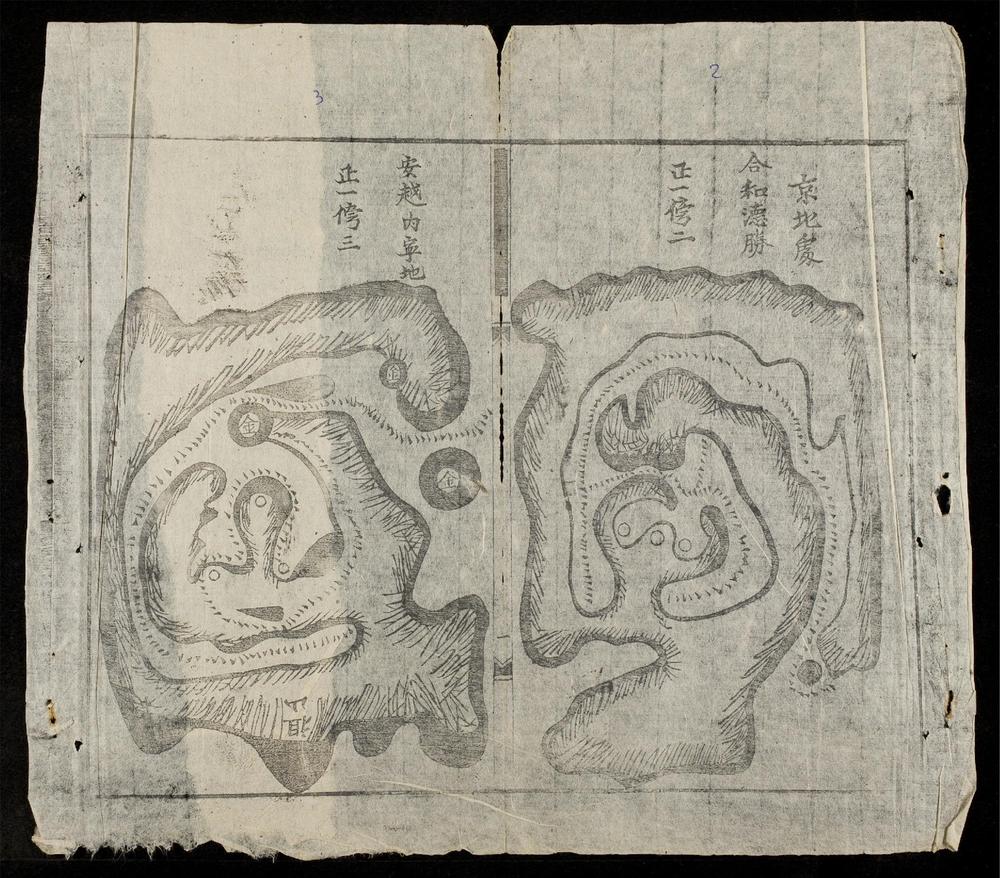 2
京地處
合和德勝
正一傍二
3
安越內寜地
正一傍三
金
金
金